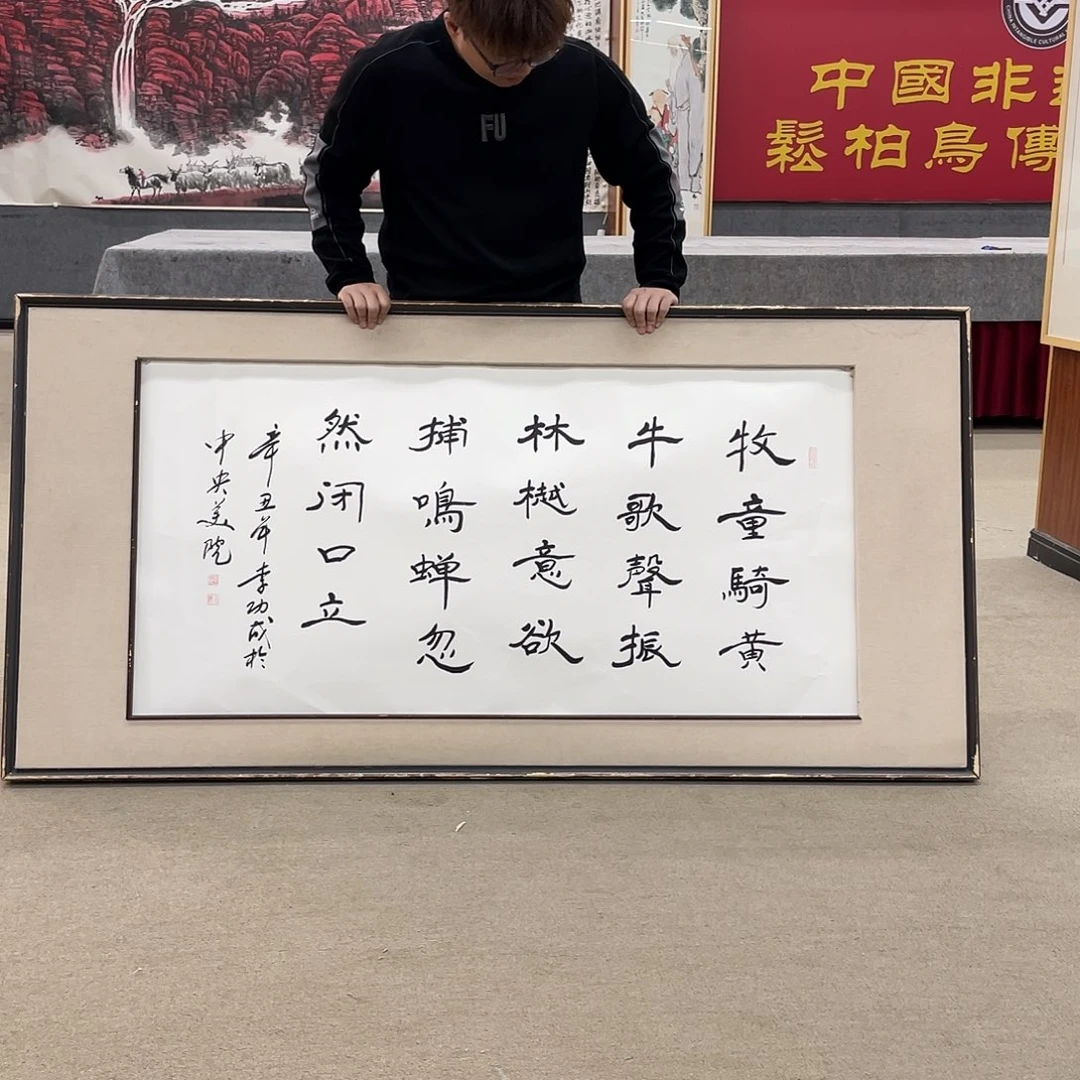 牧童騎黄
牛歌聲振
林樾意欲
捕鳴蝉忽
然闭口立
辛丑年李功成於
中央美院
FU
中國非
鬆柏鳥傳